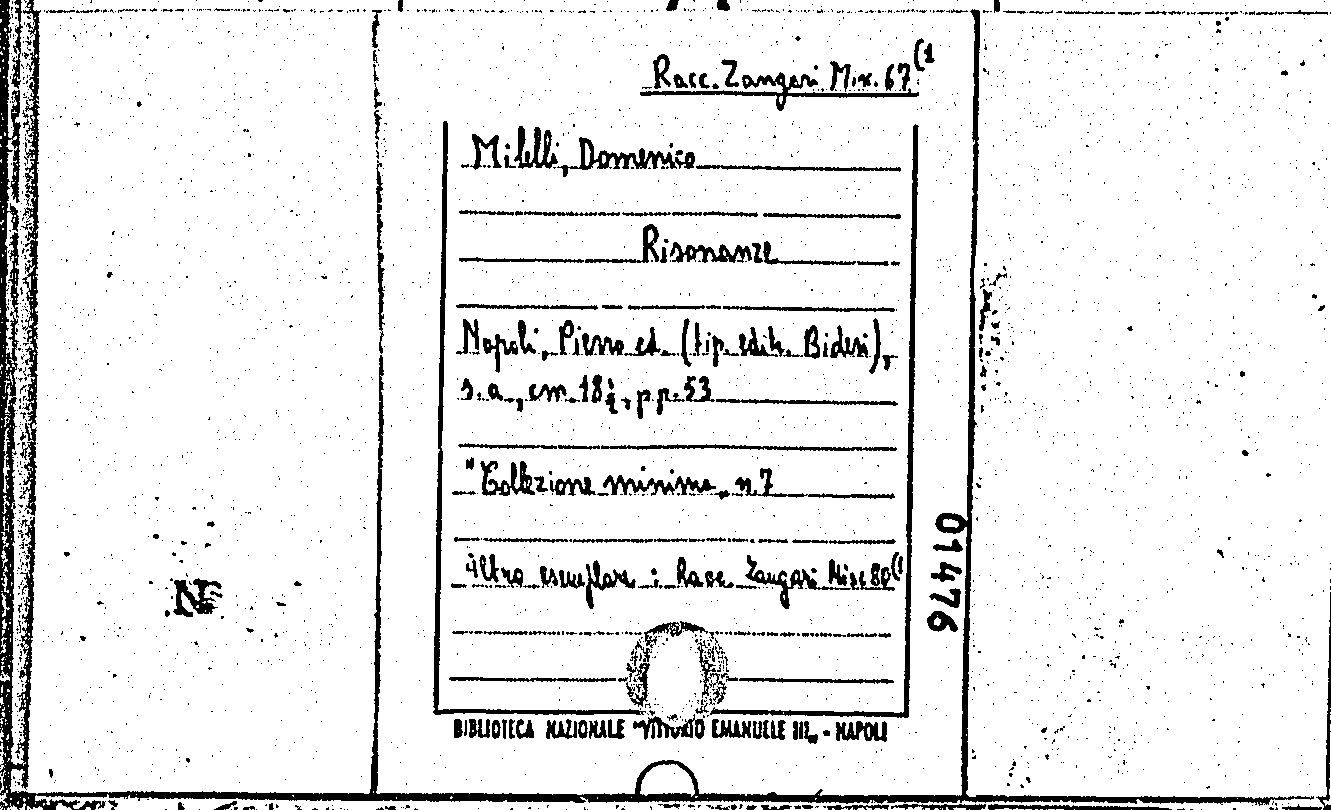 Racc. Zangari M.x. 67 (1
Milelli, Domenico
Risonanze
Napoli, Pierro ed. (tip. edit. Bideri),
s.a., cm. 18½, pp. 53
"Collezione minima„ n. 7
Altro esemplare : Racc. Zangari Misc 80 (1
01476
N
BIBLIOTECA NAZIONALE "VITTORIO EMANUELE III„ - NAPOLI